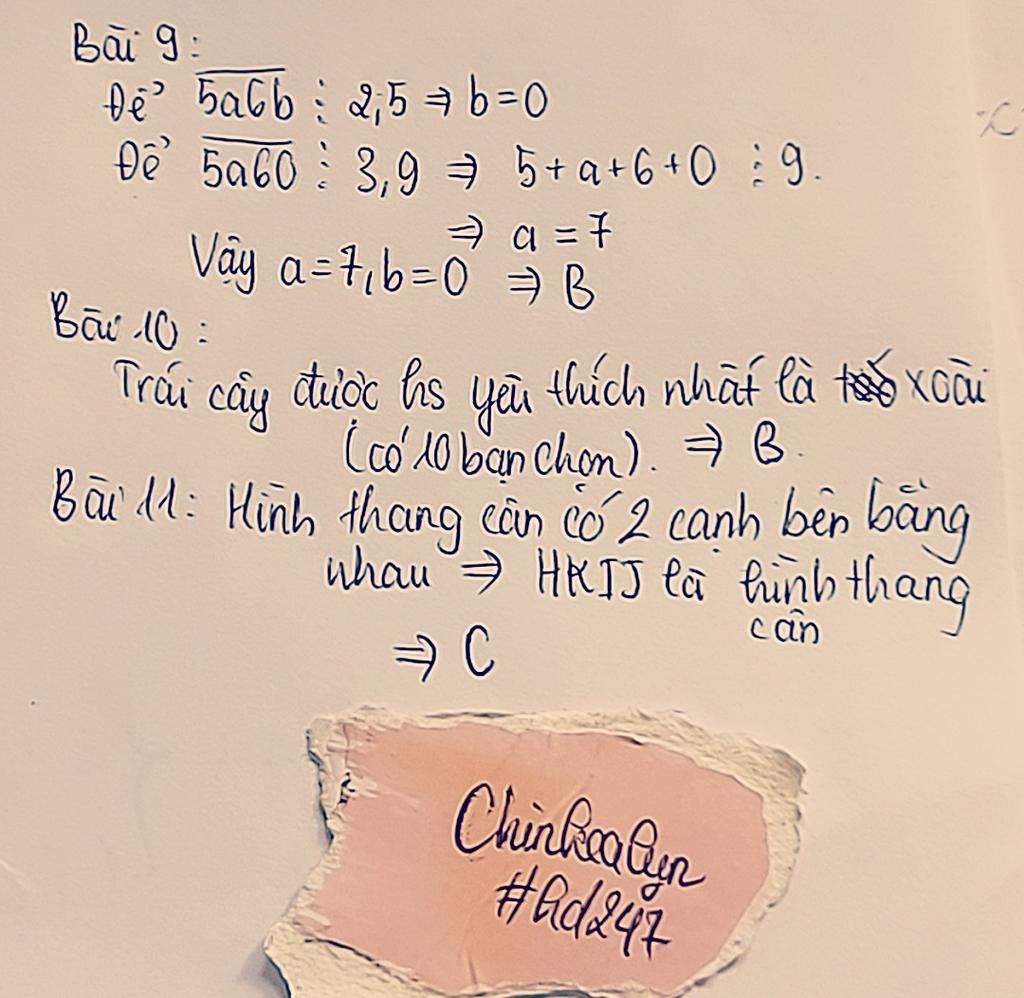 Bài 9:
Để 5a6b ⋮ 2;5 ⇒ b=0
Để 5a60 ⋮ 3,9 ⇒ 5+a+6+0 ⋮ 9.
⇒ a = 7
Vậy a=7, b=0 ⇒ B
Bài 10:
Trái cây được hs yêu thích nhất là xoài
(có 10 bạn chọn). ⇒ B.
Bài 11: Hình thang cân có 2 cạnh bên bằng
nhau ⇒ HKIJ là hình thang
cân
⇒ C
#hd247